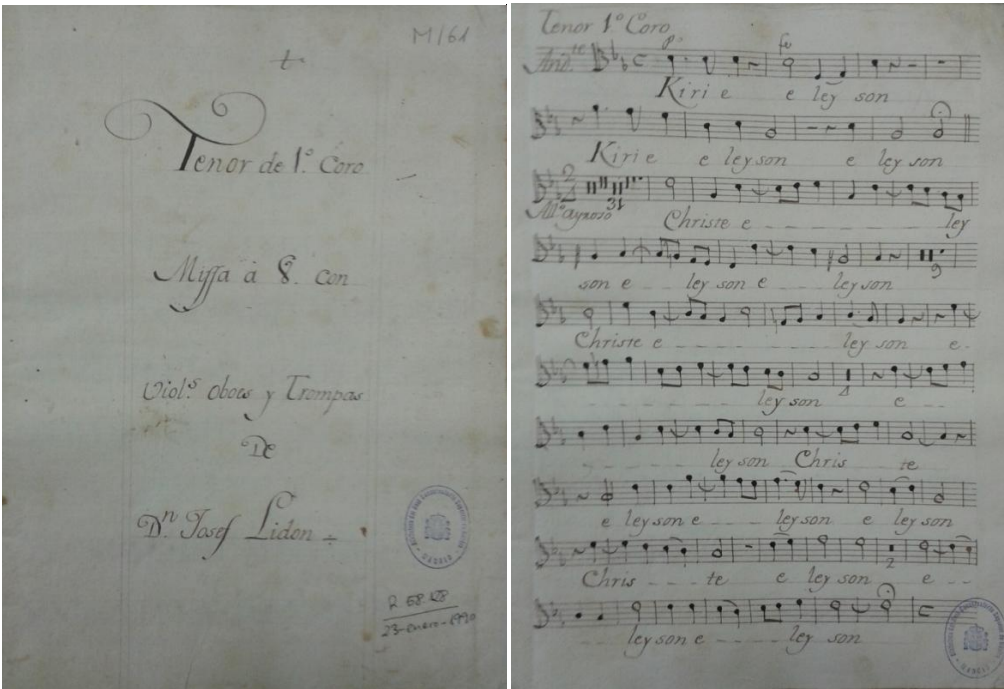 M/61
Tenor de 1º. Coro
Missa à 8. con
Viol.s oboes y Trompas
De
Dn. Josef Lidon
R 6848
23-enero-1990
Tenor 1º. Coro
And.te
p.
fe
Kiri e e ley son
Kiri e e ley son e ley son
2
4
31
Christe e ley
son e ley son e ley son
9
Christe e ley son e
ley son e
ley son Chris te
e ley son e ley son e ley son
Chris te e ley son e
2
ley son e ley son